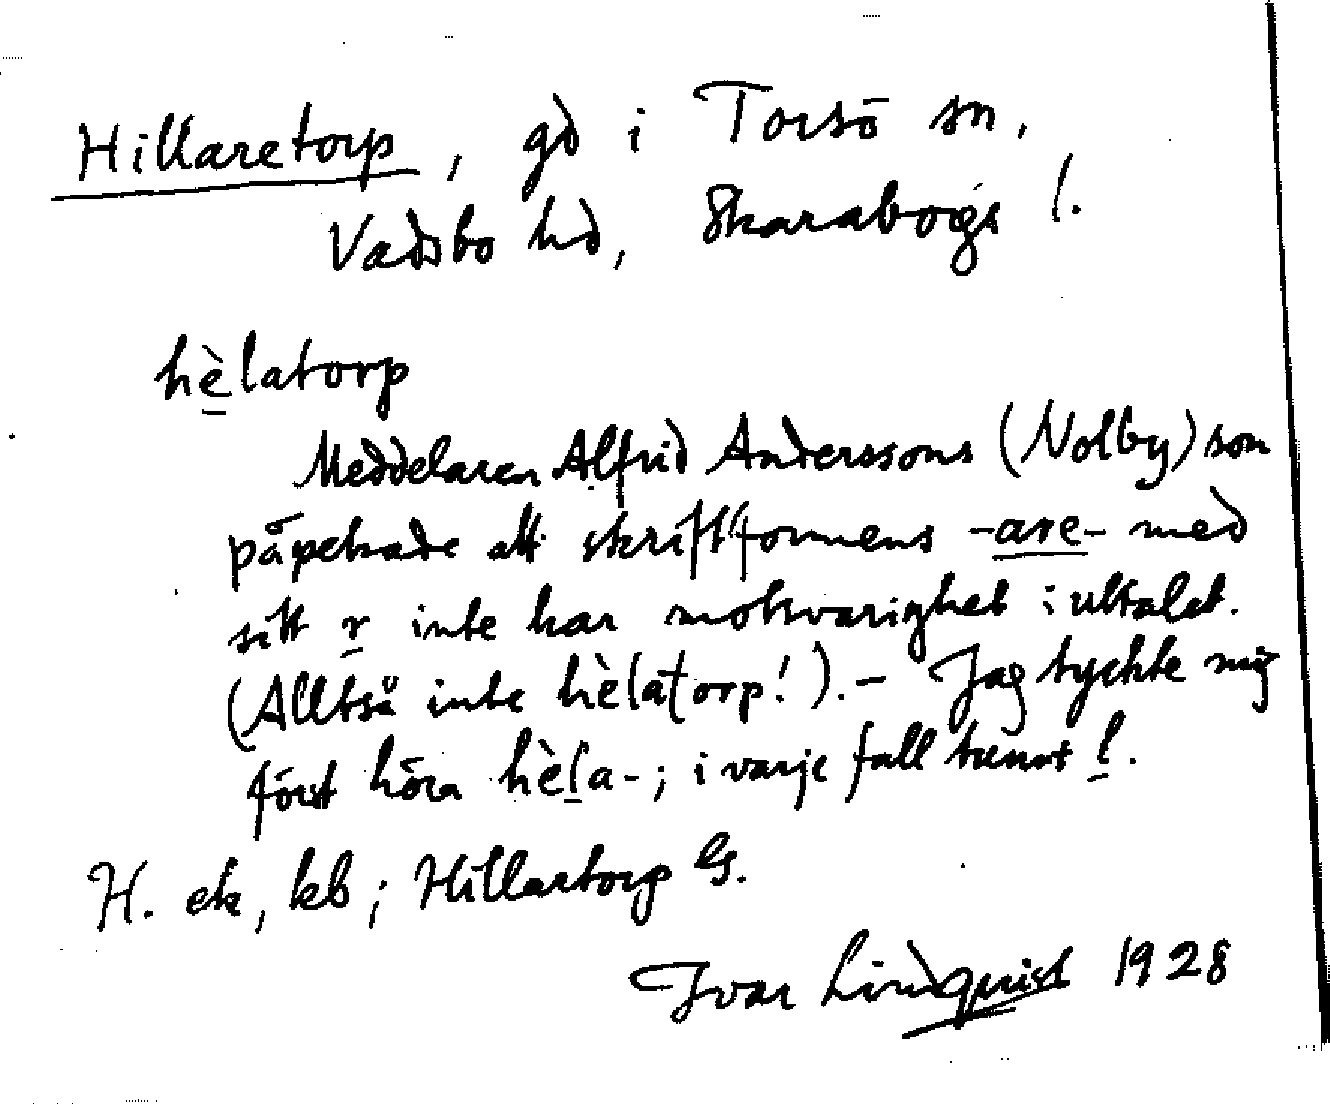 Hillaretorp, gd i Torsö sn,
Vadsbo hd, Skaraborgs l.
hèlatorp
Meddelaren Alfrid Anderssons (Nolby) son
påpekade att skriftformens -are- med
sitt r inte har motsvarighet i uttalet.
(Alltså inte hèlaṭorp!). – Jag tyckte mig
först höra hèḷa-; i varje fall tunnt l.
H. ek, kb; Hillartorp G.
Ivar Lindquist 1928